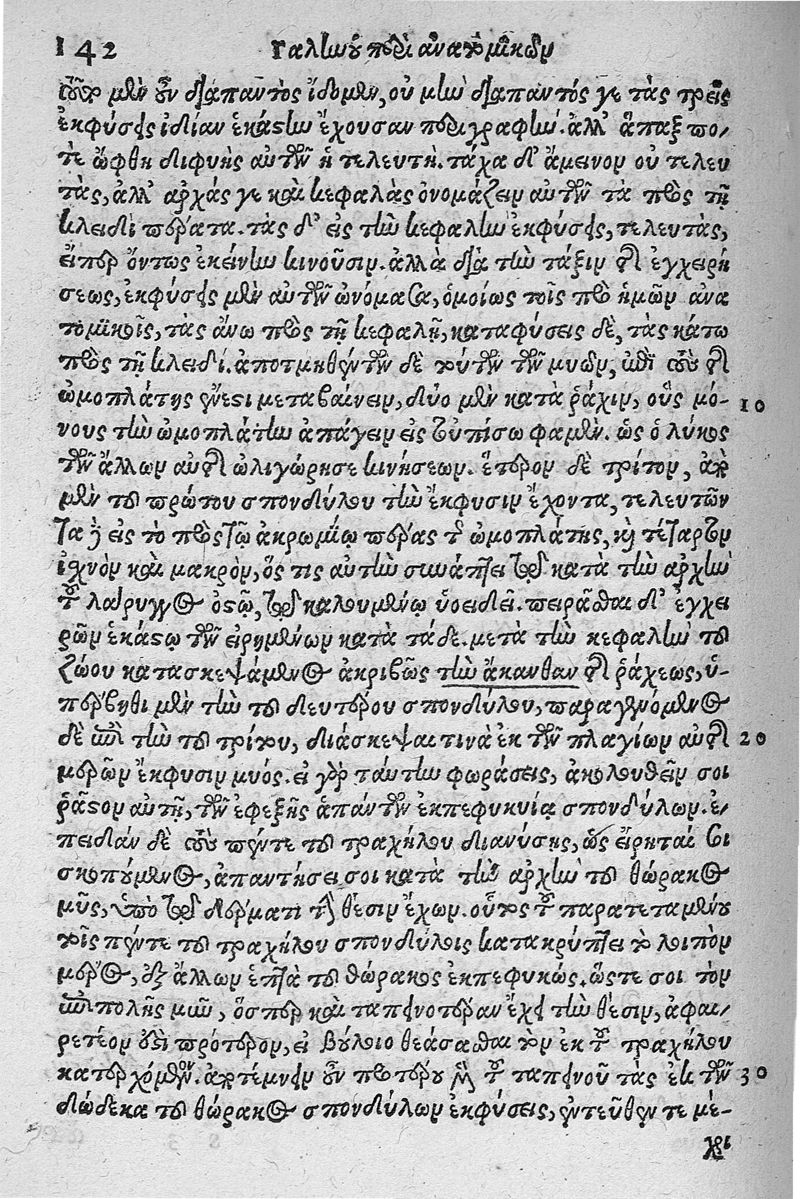 142 Γαλίωοῦ περὶ ἀνατομικῶν
μὲν οὖν διαπαντὸς ἴδομεν, οὐ μὴν διαπαντός γε τὰς τρεῖς
ἐκφύσεις ἰδίαν ἑκάστην ἔχουσαν περιγραφήν. ἀλλ' ἅπαξ πο-
τὲ ὤφθη διφυὴς αὐτῶν ἡ τελευτή. τάχα δ' ἄμεινον οὐ τελευ
τὰς, ἀλλ' ἀρχάς γε καὶ κεφαλὰς ὀνομάζειν αὐτῶν τὰ πρὸς τῇ
κλειδὶ πέρατα. τὰς δ' εἰς τὴν κεφαλὴν ἐκφύσεις, τελευτὰς,
εἴπερ ὄντως ἐκείνην κινοῦσιν. ἀλλὰ διὰ τὴν τάξιν τῆς ἐγχειρή
σεως, ἐκφύσεις μὲν αὐτῶν ὠνόμασα, ὁμοίως τοῖς πρὸ ἡμῶν ἀνα
τομικοῖς, τὰς ἄνω πρὸς τῇ κεφαλῇ, καταφύσεις δὲ, τὰς κάτω
πρὸς τῇ κλειδί. ἀποτμηθέντων δὲ τούτων τῶν μυῶν, ἐπὶ τοὺς τῆς
ὠμοπλάτης ἔνεστι μεταβαίνειν, δύο μὲν κατὰ ῥάχιν, οὓς μό- 10
νους τὴν ὠμοπλάτην ἀπάγειν εἰς τοὐπίσω φαμέν. ὡς ὁ λύκος
τῶν ἄλλων αὐτῆς ὠλιγώρησε κινήσεων. ἕτερον δὲ τρίτον, ἀπὸ
μὲν τοῦ πρώτου σπονδύλου τὴν ἔκφυσιν ἔχοντα, τελευτῶν
τα δὲ εἰς τὸ πρὸς τῷ ἀκρωμίῳ πέρας τῆς ὠμοπλάτης, καὶ τέταρτον
ἰχνὸν καὶ μακρὸν, ὅς τις αὐτὴν συνάπτει τῷ κατὰ τὴν ἀρχὴν
τοῦ λάρυγγος ὀστῷ, τῷ καλουμένῳ ὑοειδεῖ. πειρᾶσθαι δ' ἐγχει
ρῶν ἑκάστῳ τῶν εἰρημένων κατὰ τάδε. μετὰ τὴν κεφαλὴν τοῦ
ζώου κατασκεψάμενος ἀκριβῶς τὴν ἄκανθαν τῆς ῥάχεως, ὑ-
πέρβηθι μὲν τὴν τοῦ δευτέρου σπονδύλου, παραγενόμενος
δὲ ἐπὶ τὴν τοῦ τρίτου, διάσκεψαι τινὰ ἐκ τῶν πλαγίων αὐτῆς 20
μερῶν ἔκφυσιν μυός. εἰ γὰρ ταύτην φωράσεις, ἀκολουθεῖν σοι
ῥᾷστον αὐτῇ, τῶν ἐφεξῆς ἁπάντων ἐκπεφυκυίᾳ σπονδύλων. ἐ-
πειδὰν δὲ τοὺς πέντε τοῦ τραχήλου διανύσῃς, ὡς εἴρηταί σοι
σκοπούμενος, ἀπαντήσει σοι κατὰ τὴν ἀρχὴν τοῦ θώρακος
μῦς, ὑπὸ τῷ δέρματι τὴν θέσιν ἔχων. οὗτος τοῦ παρατεταμένου
τοῖς πέντε τοῦ τραχήλου σπονδύλοις κατακρύπτει τὸ λοιπὸν
μέρος, ἐξ ἄλλων ἑπτὰ τοῦ θώρακος ἐκπεφυκώς. ὥστε σοι τὸν
ἐπιπολῆς μῦν, ὅσπερ καὶ ταπεινοτέραν ἔχει τὴν θέσιν, ἀφαι-
ρετέον ἐστὶ πρότερον, εἰ βούλοιο θεάσασθαι τὸν ἐκ τοῦ τραχήλου
κατερχόμενον. ἀποτέμνειν οὖν προτέρου μὲν τοῦ ταπεινοῦ τὰς ἐκ τῶν 30
δώδεκα τοῦ θώρακος σπονδύλων ἐκφύσεις, ἐντεῦθέν τε μέ-
χρι